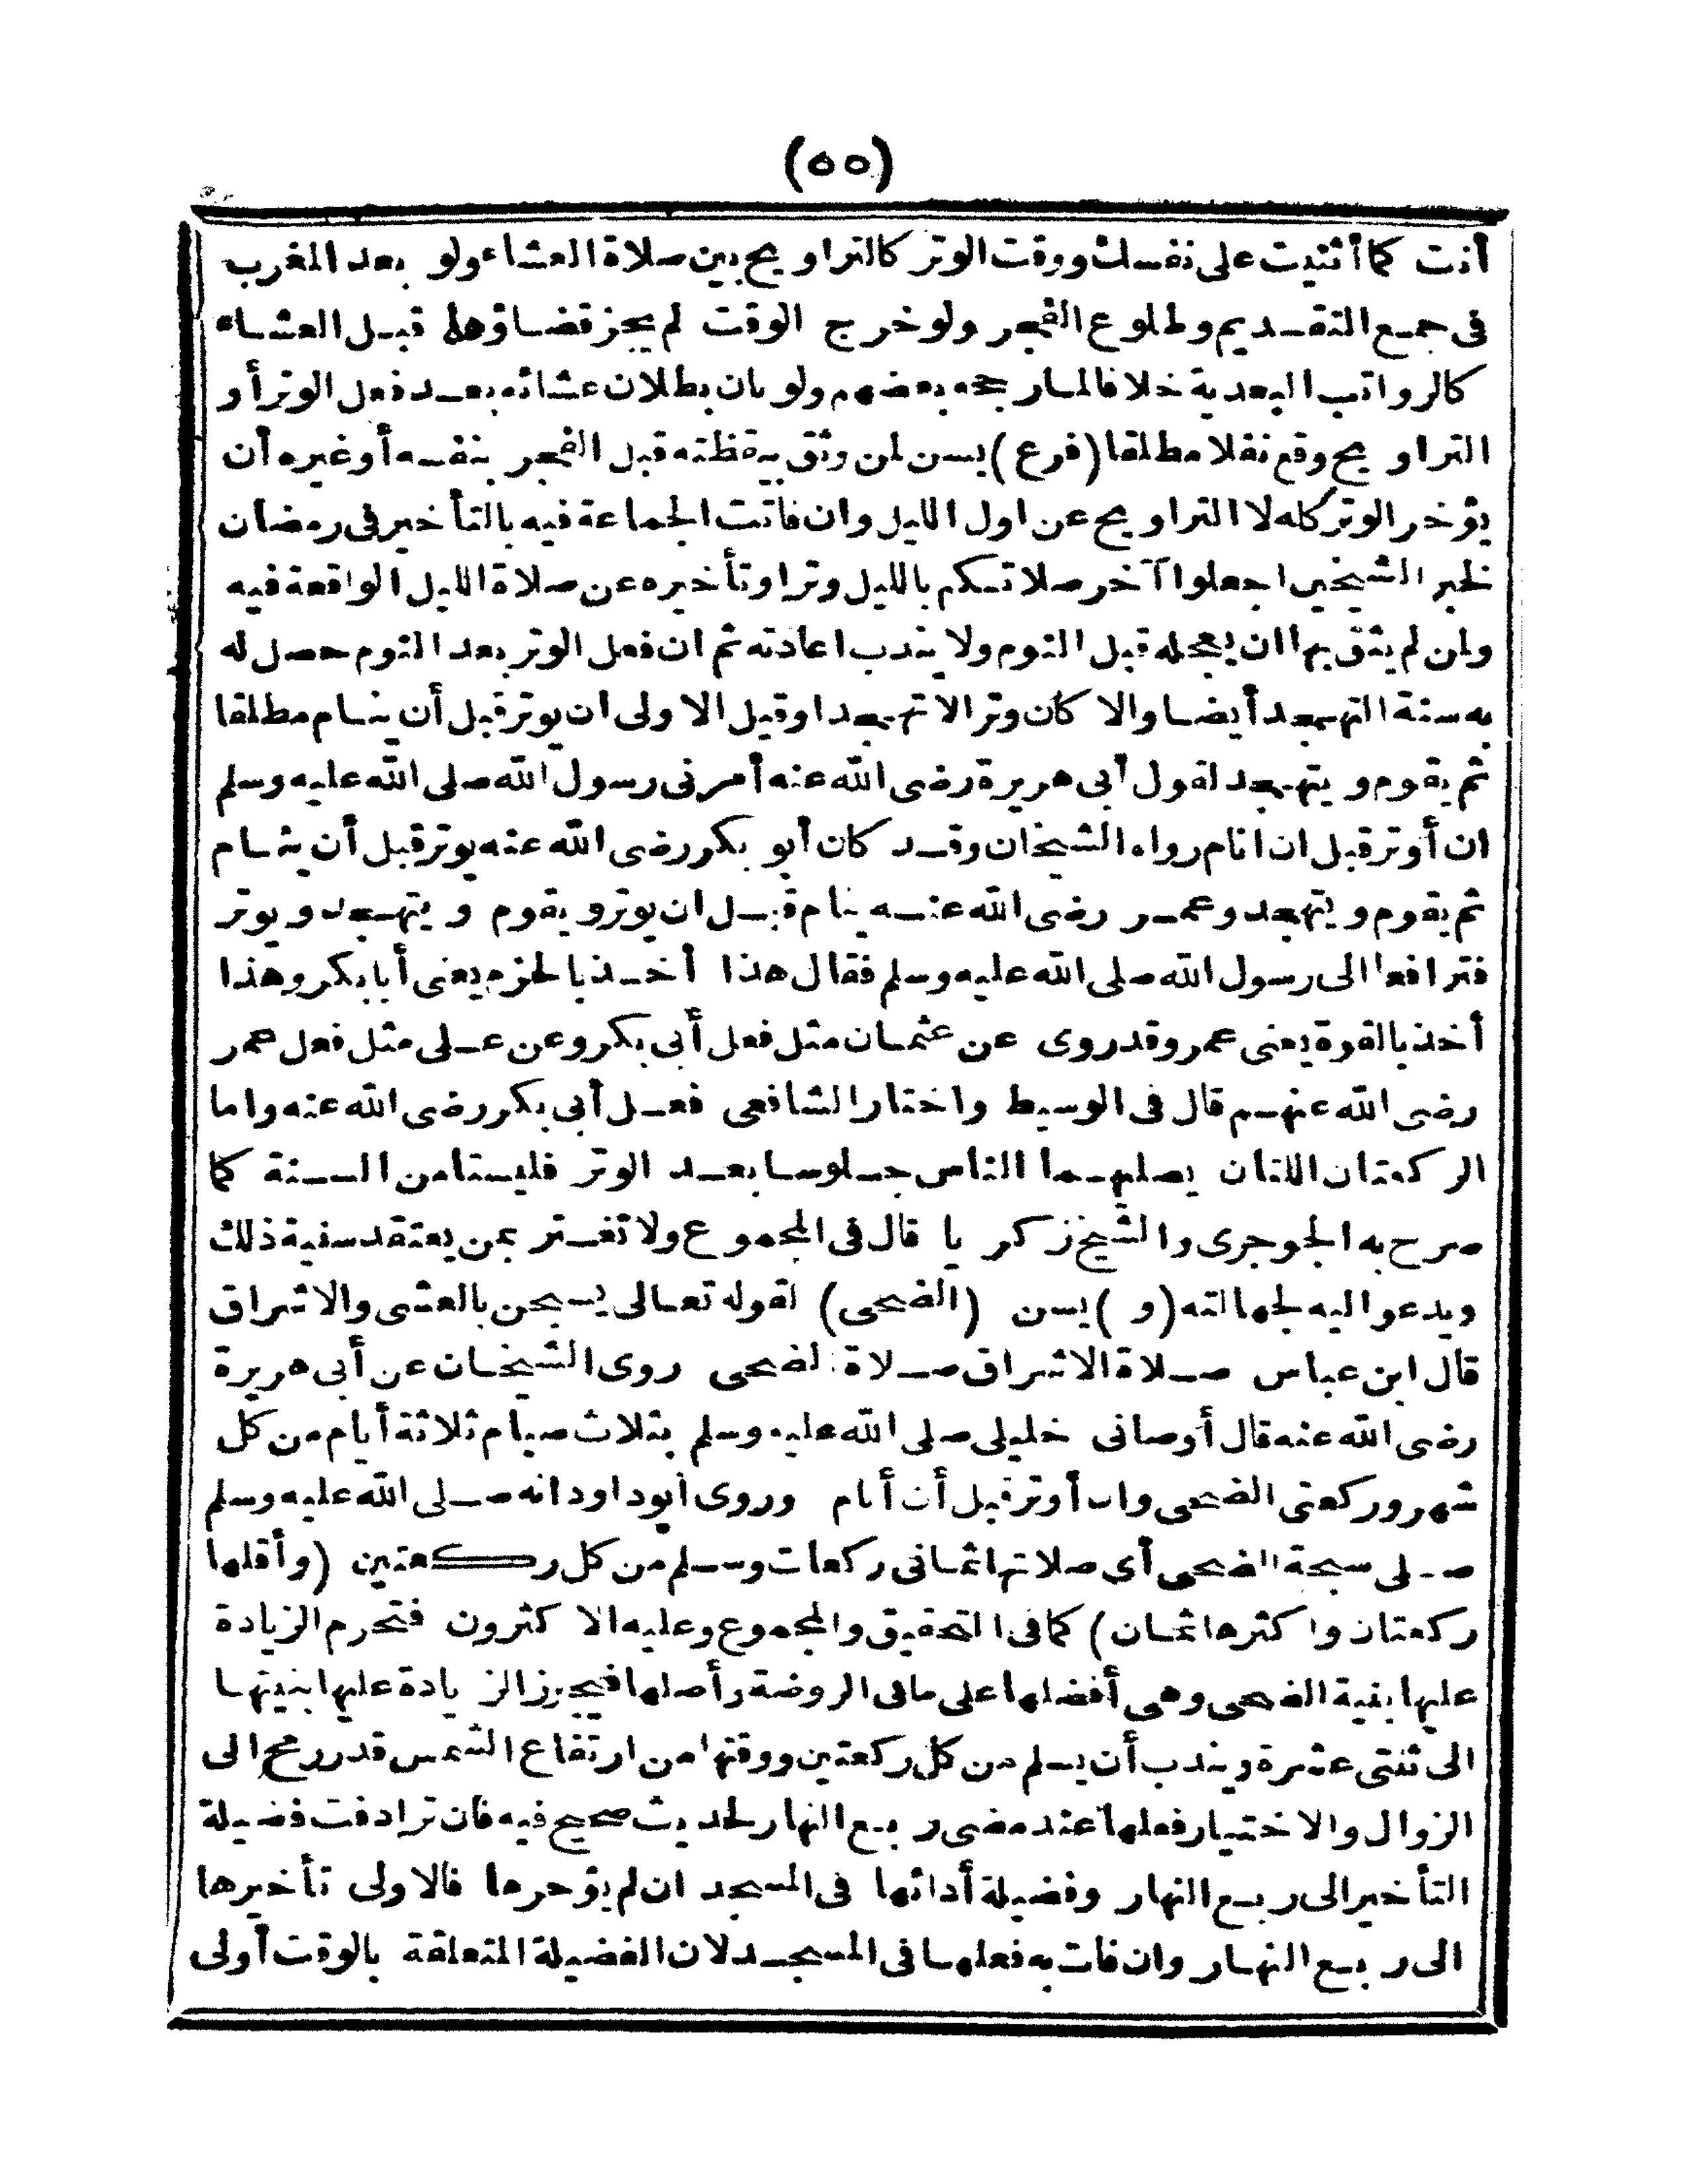 (٥٥)
أنت كما أثنيت على نفسك ووقت الوتر كالتراويح بين صلاة العشاء ولو بعد المغرب
فى جمع التقديم وطلوع الفجر ولو خرج الوقت لم يجز قضاؤها قبل العشاء
كالرواتب البعدية خلافا لما رجحه بعضهم ولو بان بطلان عشائه بعد فعل الوتر أو
التراويح وقع نفلا مطلقا (فرع) يسن لمن وثق بيقظته قبل الفجر بنفسه أو غيره أن
يؤخر الوتر كله لا التراويح عن اول الليل وان فاتت الجماعة فيه بالتأخير فى رمضان
لخبر الشيخين اجعلوا آخر صلاتكم بالليل وترا وتأخيره عن صلاة الليل الواقعة فيه
ولمن لم يثق بها ان يعجله قبل النوم ولا يندب اعادته ثم ان فعل الوتر بعد النوم حصل له
به سنة التهجد أيضا والا كان وترا لا تهجدا وقيل الاولى ان يوتر قبل أن ينام مطلقا
ثم يقوم ويتهجد لقول أبى هريرة رضى الله عنه أمرنى رسول الله صلى الله عليه وسلم
ان أوتر قبل ان انام رواه الشيخان وقد كان أبو بكر رضى الله عنه يوتر قبل أن ينام
ثم يقوم ويتهجد وعمر رضى الله عنه ينام قبل ان يوتر ويقوم و يتهجد ويوتر
فترافعا الى رسول الله صلى الله عليه وسلم فقال هذا أخذ بالحزم يعنى أبا بكر وهذا
أخذ بالقوة يعنى عمر وقدروى عن عثمان مثل فعل أبى بكر وعن على مثل فعل عمر
رضى الله عنهم قال فى الوسيط واختار الشافعى فعل أبى بكر رضى الله عنه واما
الركعتان اللتان يصليهما الناس جلوسا بعد الوتر فليستا من السنة كما
صرح به الجوجرى والشيخ زكريا قال فى المجموع ولا تغتر بمن يعتقد سنية ذلك
ويدعو اليه لجهالته (و) يسن (الضحى) لقوله تعالى يسبحن بالعشى والاشراق
قال ابن عباس صلاة الاشراق صلاة الضحى روى الشيخان عن أبى هريرة
رضى الله عنه قال أوصانى خليلى صلى الله عليه وسلم بثلاث صيام ثلاثة أيام من كل
شهر وركعتى الضحى وان أوتر قبل أن أنام وروى أبو داود انه صلى الله عليه وسلم
صلى سبحة الضحى أى صلاتها ثمانى ركعات وسلم من كل ركعتين (وأقلها
ركعتان واكثرها ثمان) كما فى التحقيق والمجموع وعليه الاكثرون فتحرم الزيادة
عليها بنية الضحى وهى أفضلها على ما فى الروضة وأصلها فيجوز الزيادة عليها بنيتها
الى ثنتى عشرة ويندب أن يسلم من كل ركعتين ووقتها من ارتفاع الشمس قدر رمح الى
الزوال والاختيار فعلها عند مضى ربع النهار لحديث صحيح فيه فان ترادفت فضيلة
التأخير الى ربع النهار وفضيلة أدائها فى المسجد ان لم يؤخرها فالاولى تأخيرها
الى ربع النهار وان فات به فعلها فى المسجد لان الفضيلة المتعلقة بالوقت أولى